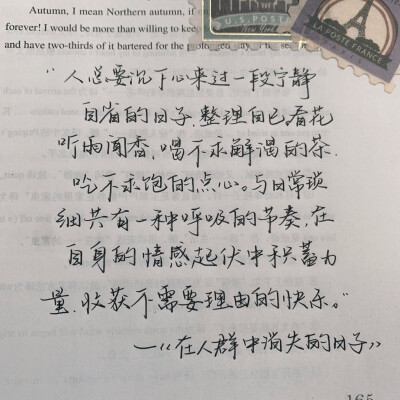 Autumn, I mean Northern autumn, if
forever! I would be more than willing to keep
and have two-thirds of it bartered for the prolonged stay of the
U.S. POST
LA POSTE FRANCE
“人总要沉下心来过一段宁静
自省的日子,整理自己,看花
听雨闻香,喝不求解渴的茶,
吃不求饱的点心。与日常琐
细共有一种呼吸的节奏,在
自身的情感起伏中积蓄力
量,收获不需要理由的快乐。”
—《在人群中消失的日子》
165